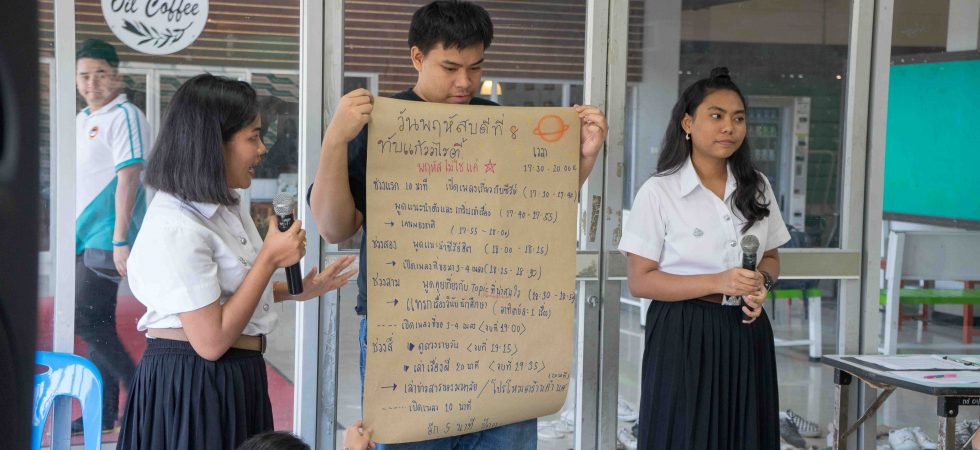 Oil Coffee
วันพฤหัสบดีที่ 8
ทับแก้ว
เวลา
พฤหัสไม่ใช่แค่
17:30 - 20:00 น
ช่วงแรก 10 นาที เปิดเพลงเกี่ยวกับ (17:30 - 17:40
พูดแนะนำตัวและเกริ่นเข้าเรื่อง (17:40 - 17:55)
→ เคารพธงชาติ (17:55 - 18:00)
ช่วงสอง พูดแนะนำ (18:00 - 18:15)
→ เปิดเพลงที่ขอมา 3-4 เพลง (18:15 - 18:30)
ช่วงสาม พูดคุยเกี่ยวกับ Topic ที่น่าสนใจ (18:30 - 18:50)
→ แทรกเรื่องวินัยนักศึกษา (อาทิตย์ละ 1 เรื่อง)
---- เปิดเพลงที่ขอ 3-4 เพลง (จบที่ 19:00)
ช่วงสี่ ดูดวงรายวัน (จบที่ 19:15)
→ เล่าเรื่องผี 20 นาที (จบที่ 19:35)
→ เล่าข่าวสารของมหาลัย / โปรโหมดร้านค้าในม
---- เปิดเพลง 10 นาที
อีก 5 นาที